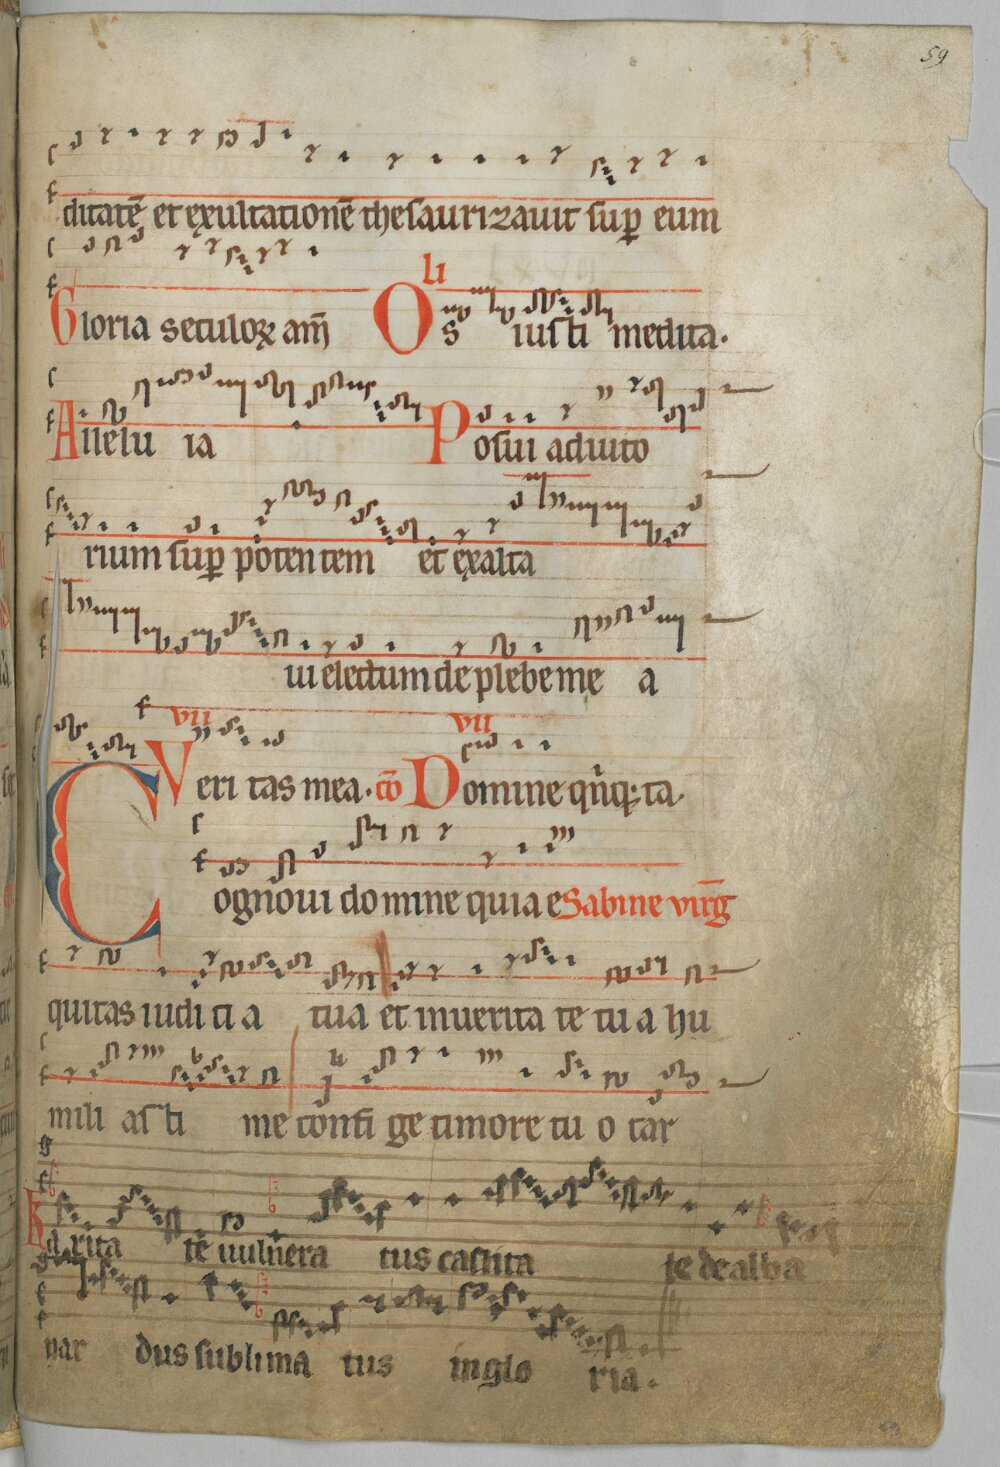 59
ditatē et exultationē thesaurizauit suꝑ eum
Gloria seculoꝝ am̄ li Os iusti medita·
Allelu ia Posui adiuto
rium suꝑ potentem et exalta
ui electum de plebe me a
vii vii
Veri tas mea· cō Domine qn̄qꝫ ta·
Cognoui domine quia e Sabine virḡ
quitas iudi ci a tua et in uerita te tu a hu
mili as ti me confi ge timore tu o car
Karita te uulnera tus castita te dealba
nar dus sublima tus in glo ria·